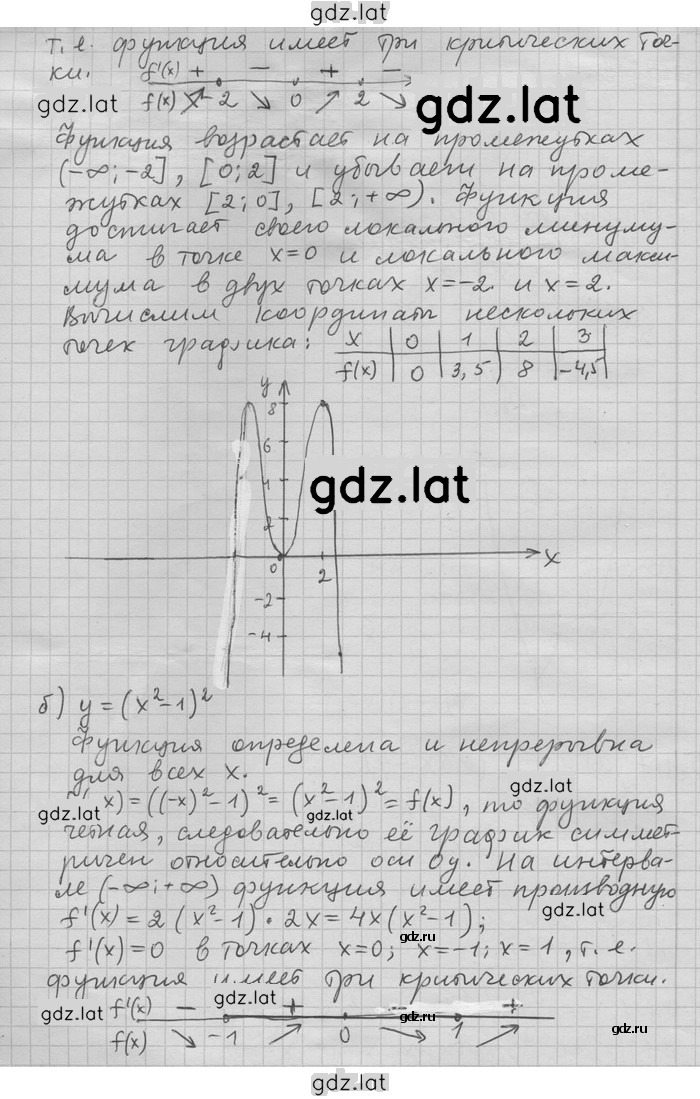 gdz.lat
т. е. функция имеет три критических точ-
ки. f'(x) + − + −
gdz.lat f(x) ↗ −2 ↘ 0 ↗ 2 ↘ gdz.lat
Функция возрастает на промежутках
(−∞; −2], [0; 2] и убывает на проме-
жутках [2; 0], [2; +∞). Функция
достигает своего локального минуму-
ма в точке x=0 и локального макси-
мума в двух точках x=−2 и x=2.
Вычислим координаты нескольких
точек графика: x 0 1 2 3
f(x) 0 3,5 8 −4,5
y
8
6
gdz.lat
2
0 2 x
−2
−4
б) y = (x²−1)²
Функция определена и непрерывна
для всех x.
gdz.lat
x) = ((−x)²−1)² = (x²−1)² = f(x), то функция
gdz.lat gdz.lat
четная, следовательно её график симмет
ричен относительно оси Oy. На интерва-
ле (−∞; +∞) функция имеет производную
gdz.lat
f'(x) = 2(x²−1)·2x = 4x(x²−1);
gdz.lat gdz.ru
f'(x)=0 в точках x=0; x=−1; x=1, т. е.
функция имеет три критических точки.
gdz.lat gdz.lat
f'(x) − + − +
gdz.lat gdz.ru
f(x) ↘ −1 ↗ 0 ↘ 1 ↗
gdz.ru
gdz.lat